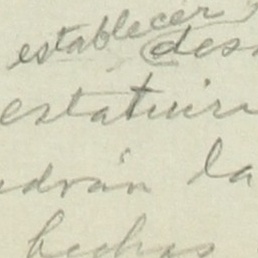 establecer
des
estatuir
ndrán la
hechas